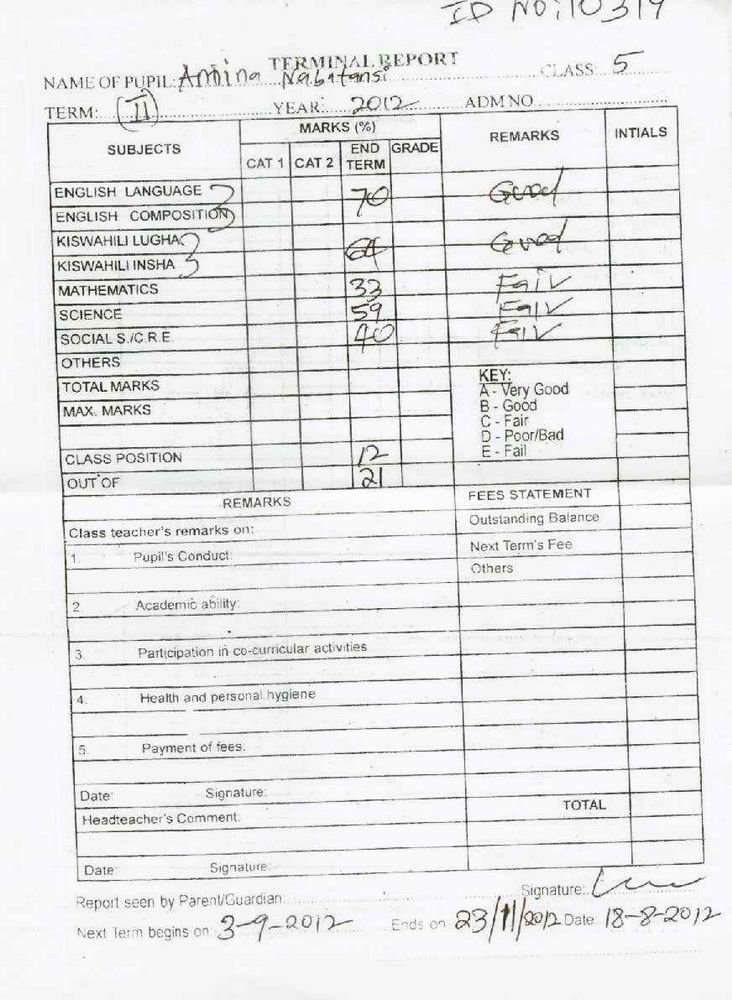 ID NO: 10319
TERMINAL REPORT
NAME OF PUPIL: Amina Nabatansi CLASS: 5
TERM: (II) YEAR: 2012 ADM NO
SUBJECTS MARKS (%) REMARKS INTIALS
CAT 1 CAT 2 END TERM GRADE
ENGLISH LANGUAGE 70 Good
ENGLISH COMPOSITION
KISWAHILI LUGHA 64 Good
KISWAHILI INSHA
MATHEMATICS 33 Fair
SCIENCE 59 Fair
SOCIAL S./C.R.E 40 Fair
OTHERS
TOTAL MARKS
MAX. MARKS
KEY:
A - Very Good
B - Good
C - Fair
D - Poor/Bad
E - Fail
CLASS POSITION 12
OUT OF 21
REMARKS
Class teacher's remarks on:
1. Pupil's Conduct:
2 Academic ability:
3. Participation in co-curricular activities
4. Health and personal hygiene
5. Payment of fees:
Date: Signature:
Headteacher's Comment:
Date: Signature:
FEES STATEMENT
Outstanding Balance
Next Term's Fee
Others
TOTAL
Report seen by Parent/Guardian: Signature:
Next Term begins on: 3-9-2012 Ends on 23/11/2012 Date: 18-8-2012